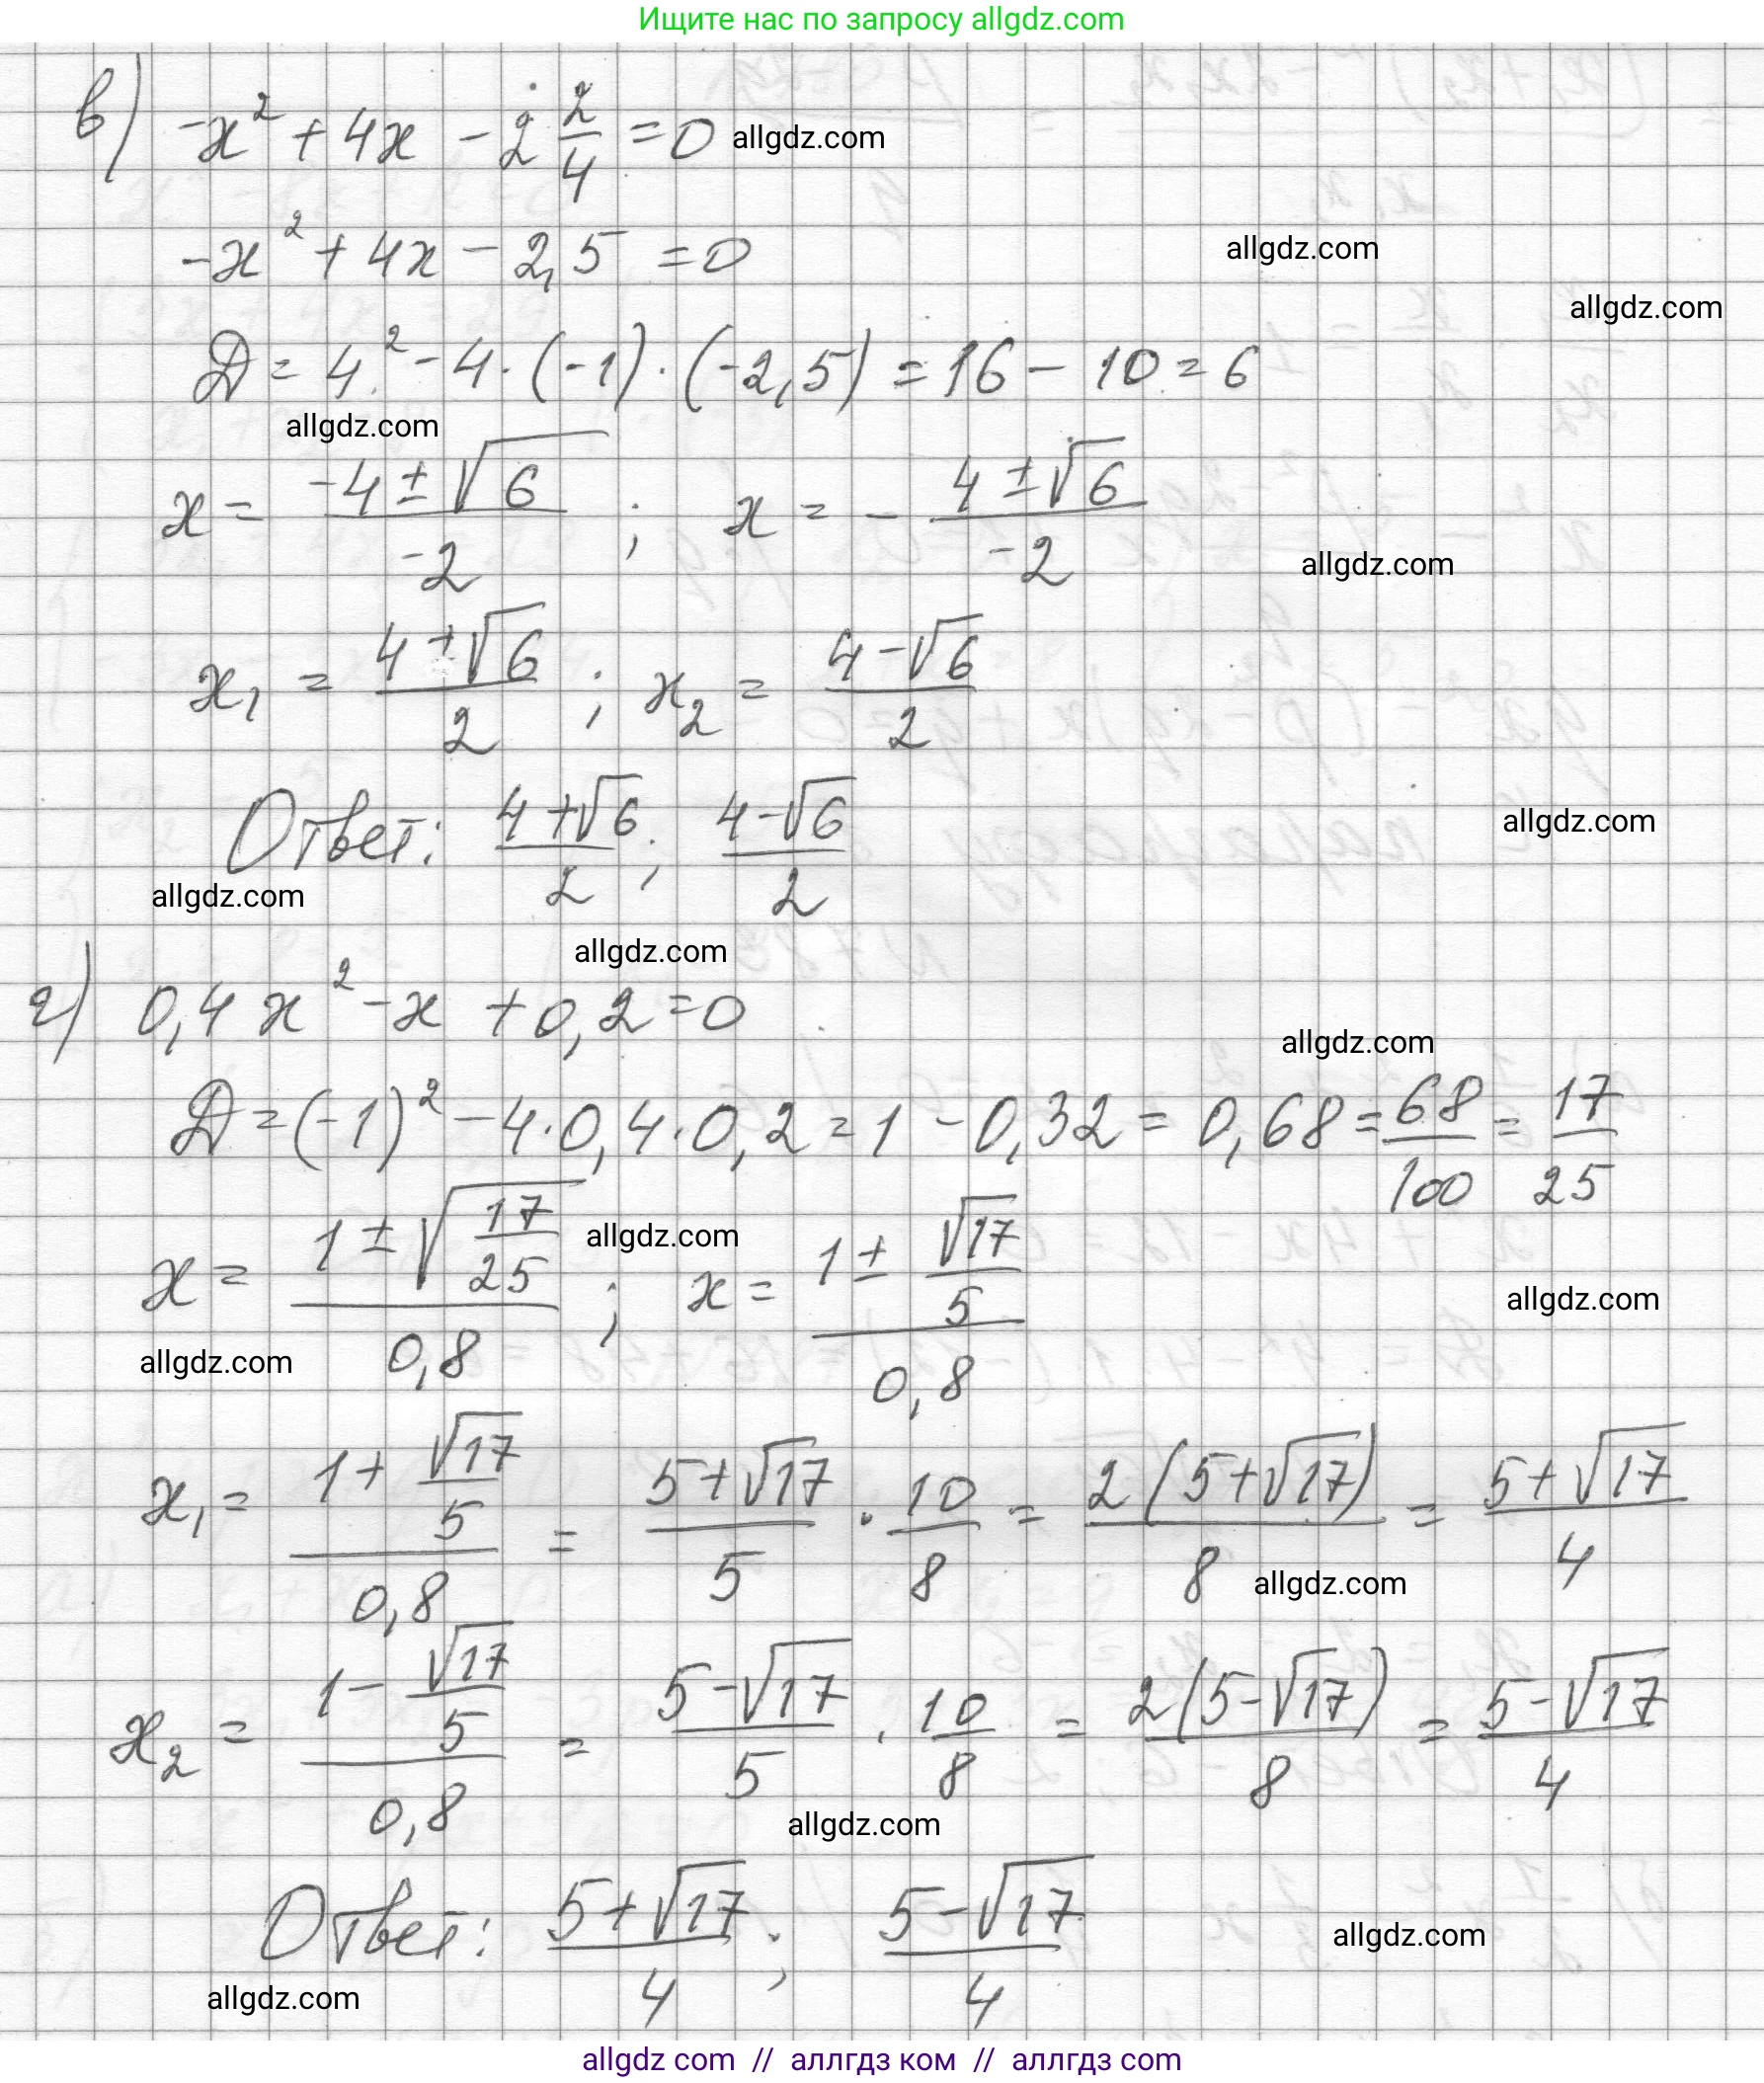 Ищите нас по запросу allgdz.com
в) -x² + 4x - 2 2/4 = 0 allgdz.com
-x² + 4x - 2,5 = 0 allgdz.com
allgdz.com
Д = 4² - 4 · (-1) · (-2,5) = 16 - 10 = 6
allgdz.com
x = (-4 ± √6)/(-2) ; x = - (4 ± √6)/(-2)
allgdz.com
x₁ = (4 ± √6)/2 ; x₂ = (4 - √6)/2
Ответ: (4 + √6)/2 ; (4 - √6)/2 allgdz.com
allgdz.com
allgdz.com
г) 0,4x² - x + 0,2 = 0
allgdz.com
Д = (-1)² - 4 · 0,4 · 0,2 = 1 - 0,32 = 0,68 = 68/100 = 17/25
x = (1 ± √(17/25))/0,8 ; allgdz.com x = (1 ± √17/5)/0,8
allgdz.com
allgdz.com
x₁ = (1 + √17/5)/0,8 = (5 + √17)/5 · 10/8 = 2(5 + √17)/8 = (5 + √17)/4
allgdz.com
x₂ = (1 - √17/5)/0,8 = (5 - √17)/5 · 10/8 = 2(5 - √17)/8 = (5 - √17)/4
allgdz.com
Ответ: (5 + √17)/4 ; (5 - √17)/4 allgdz.com
allgdz.com
allgdz com // аллгдз ком // аллгдз com